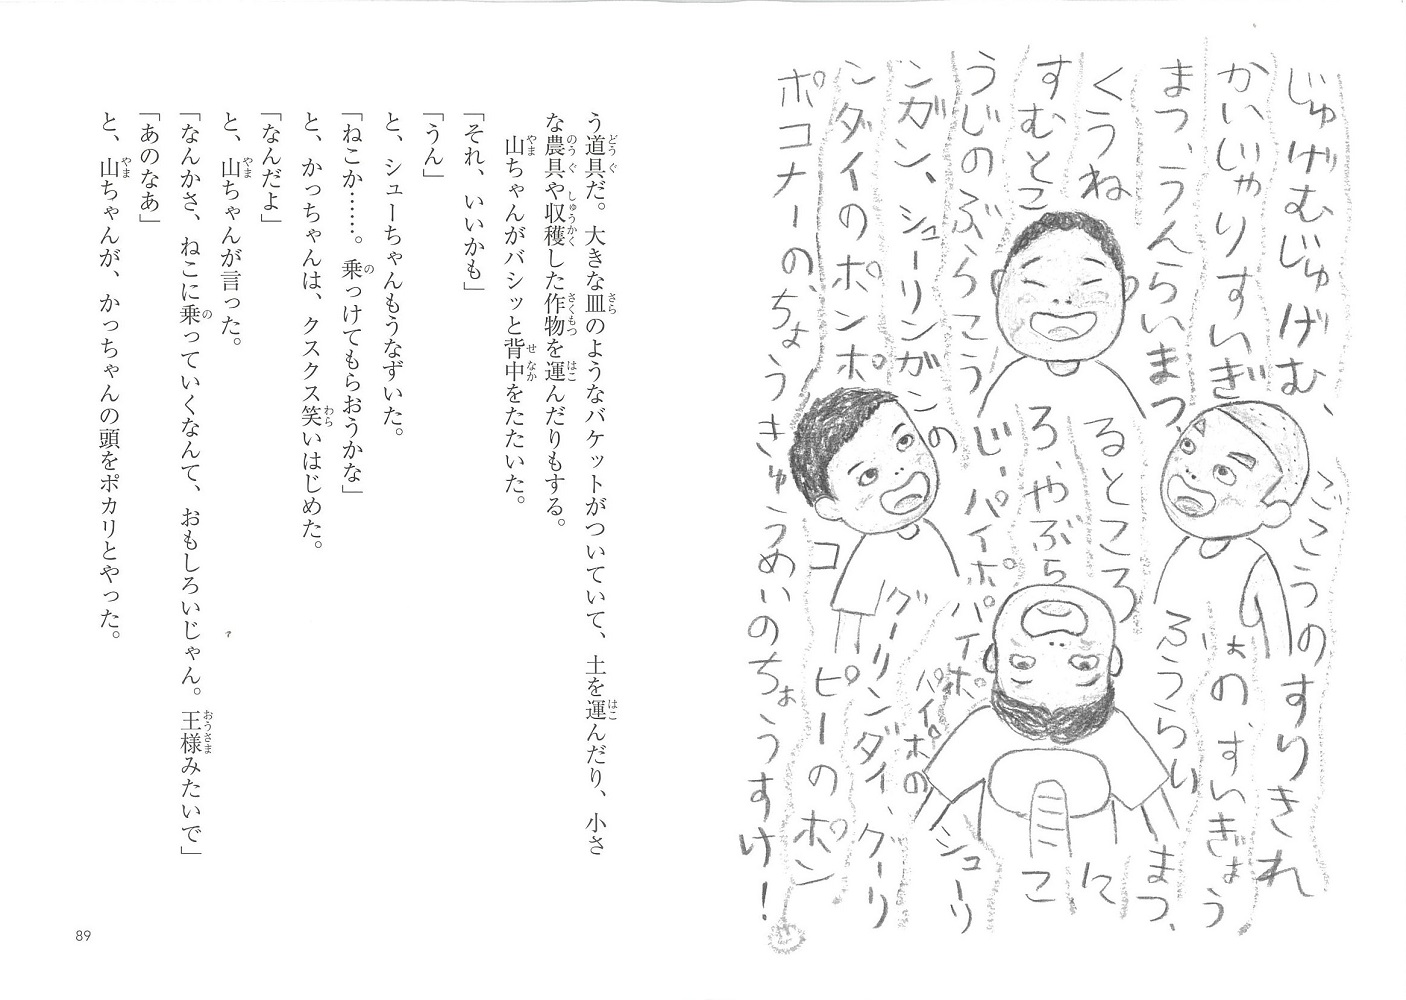 じゅげむじゅげむ、ごこうのすりきれ
かいじゃりすいぎょの、すいぎょう
まつ、うんらいまつ、ふうらいまつ、
くうねるところに
すむところ、やぶらこ
うじのぶらこうじ、パイポパイポパイポのシューリ
ンガン、シューリンガンのグーリンダイ、グーリ
ンダイのポンポコピーのポン
ポコナーの、ちょうきゅうめいのちょうすけ！
う道具だ。大きな皿のようなバケットがついていて、土を運んだり、小さ
な農具や収穫した作物を運んだりもする。
山ちゃんがバシッと背中をたたいた。
「それ、いいかも」
「うん」
と、シューちゃんもうなずいた。
「ねこか……。乗っけてもらおうかな」
と、かっちゃんは、クスクス笑いはじめた。
「なんだよ」
と、山ちゃんが言った。
「なんかさ、ねこに乗っていくなんて、おもしろいじゃん。王様みたいで」
「あのなあ」
と、山ちゃんが、かっちゃんの頭をポカリとやった。
89